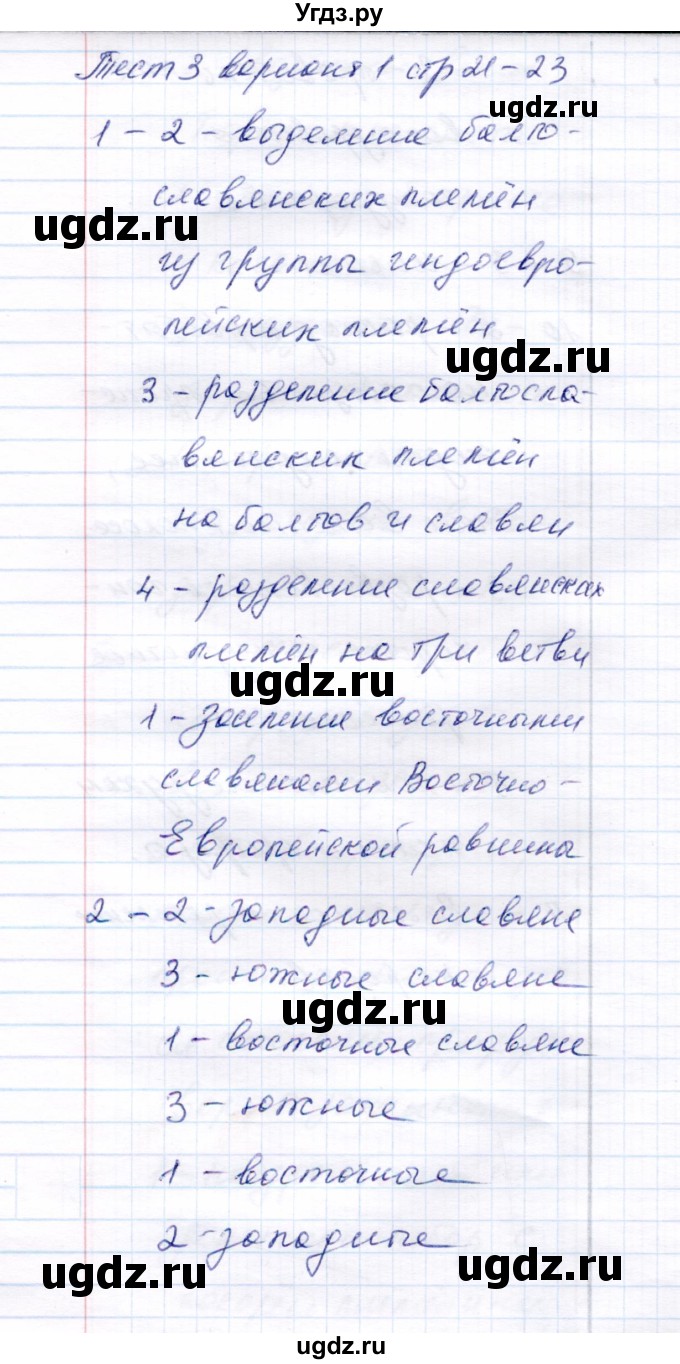 Угдз.ру
Тест 3 вариант 1 стр 21-23
ugdz.ru
1 - 2 - выделение балто-
славянских племён
ugdz.ru
из группы индоевро-
пейских племён
ugdz.ru
3 - разделение балтосла-
вянских племён
на балтов и славян
4 - разделение славянских
племён на три ветви
ugdz.ru
1 - Заселение восточными
славянами Восточно-
Европейской равнины
2 - 2 - западные славяне
3 - южные славяне
ugdz.ru
1 - восточные славяне
3 - южные
1 - восточные
2 - западные
ugdz.ru ugdz.ru
ugdz.ru